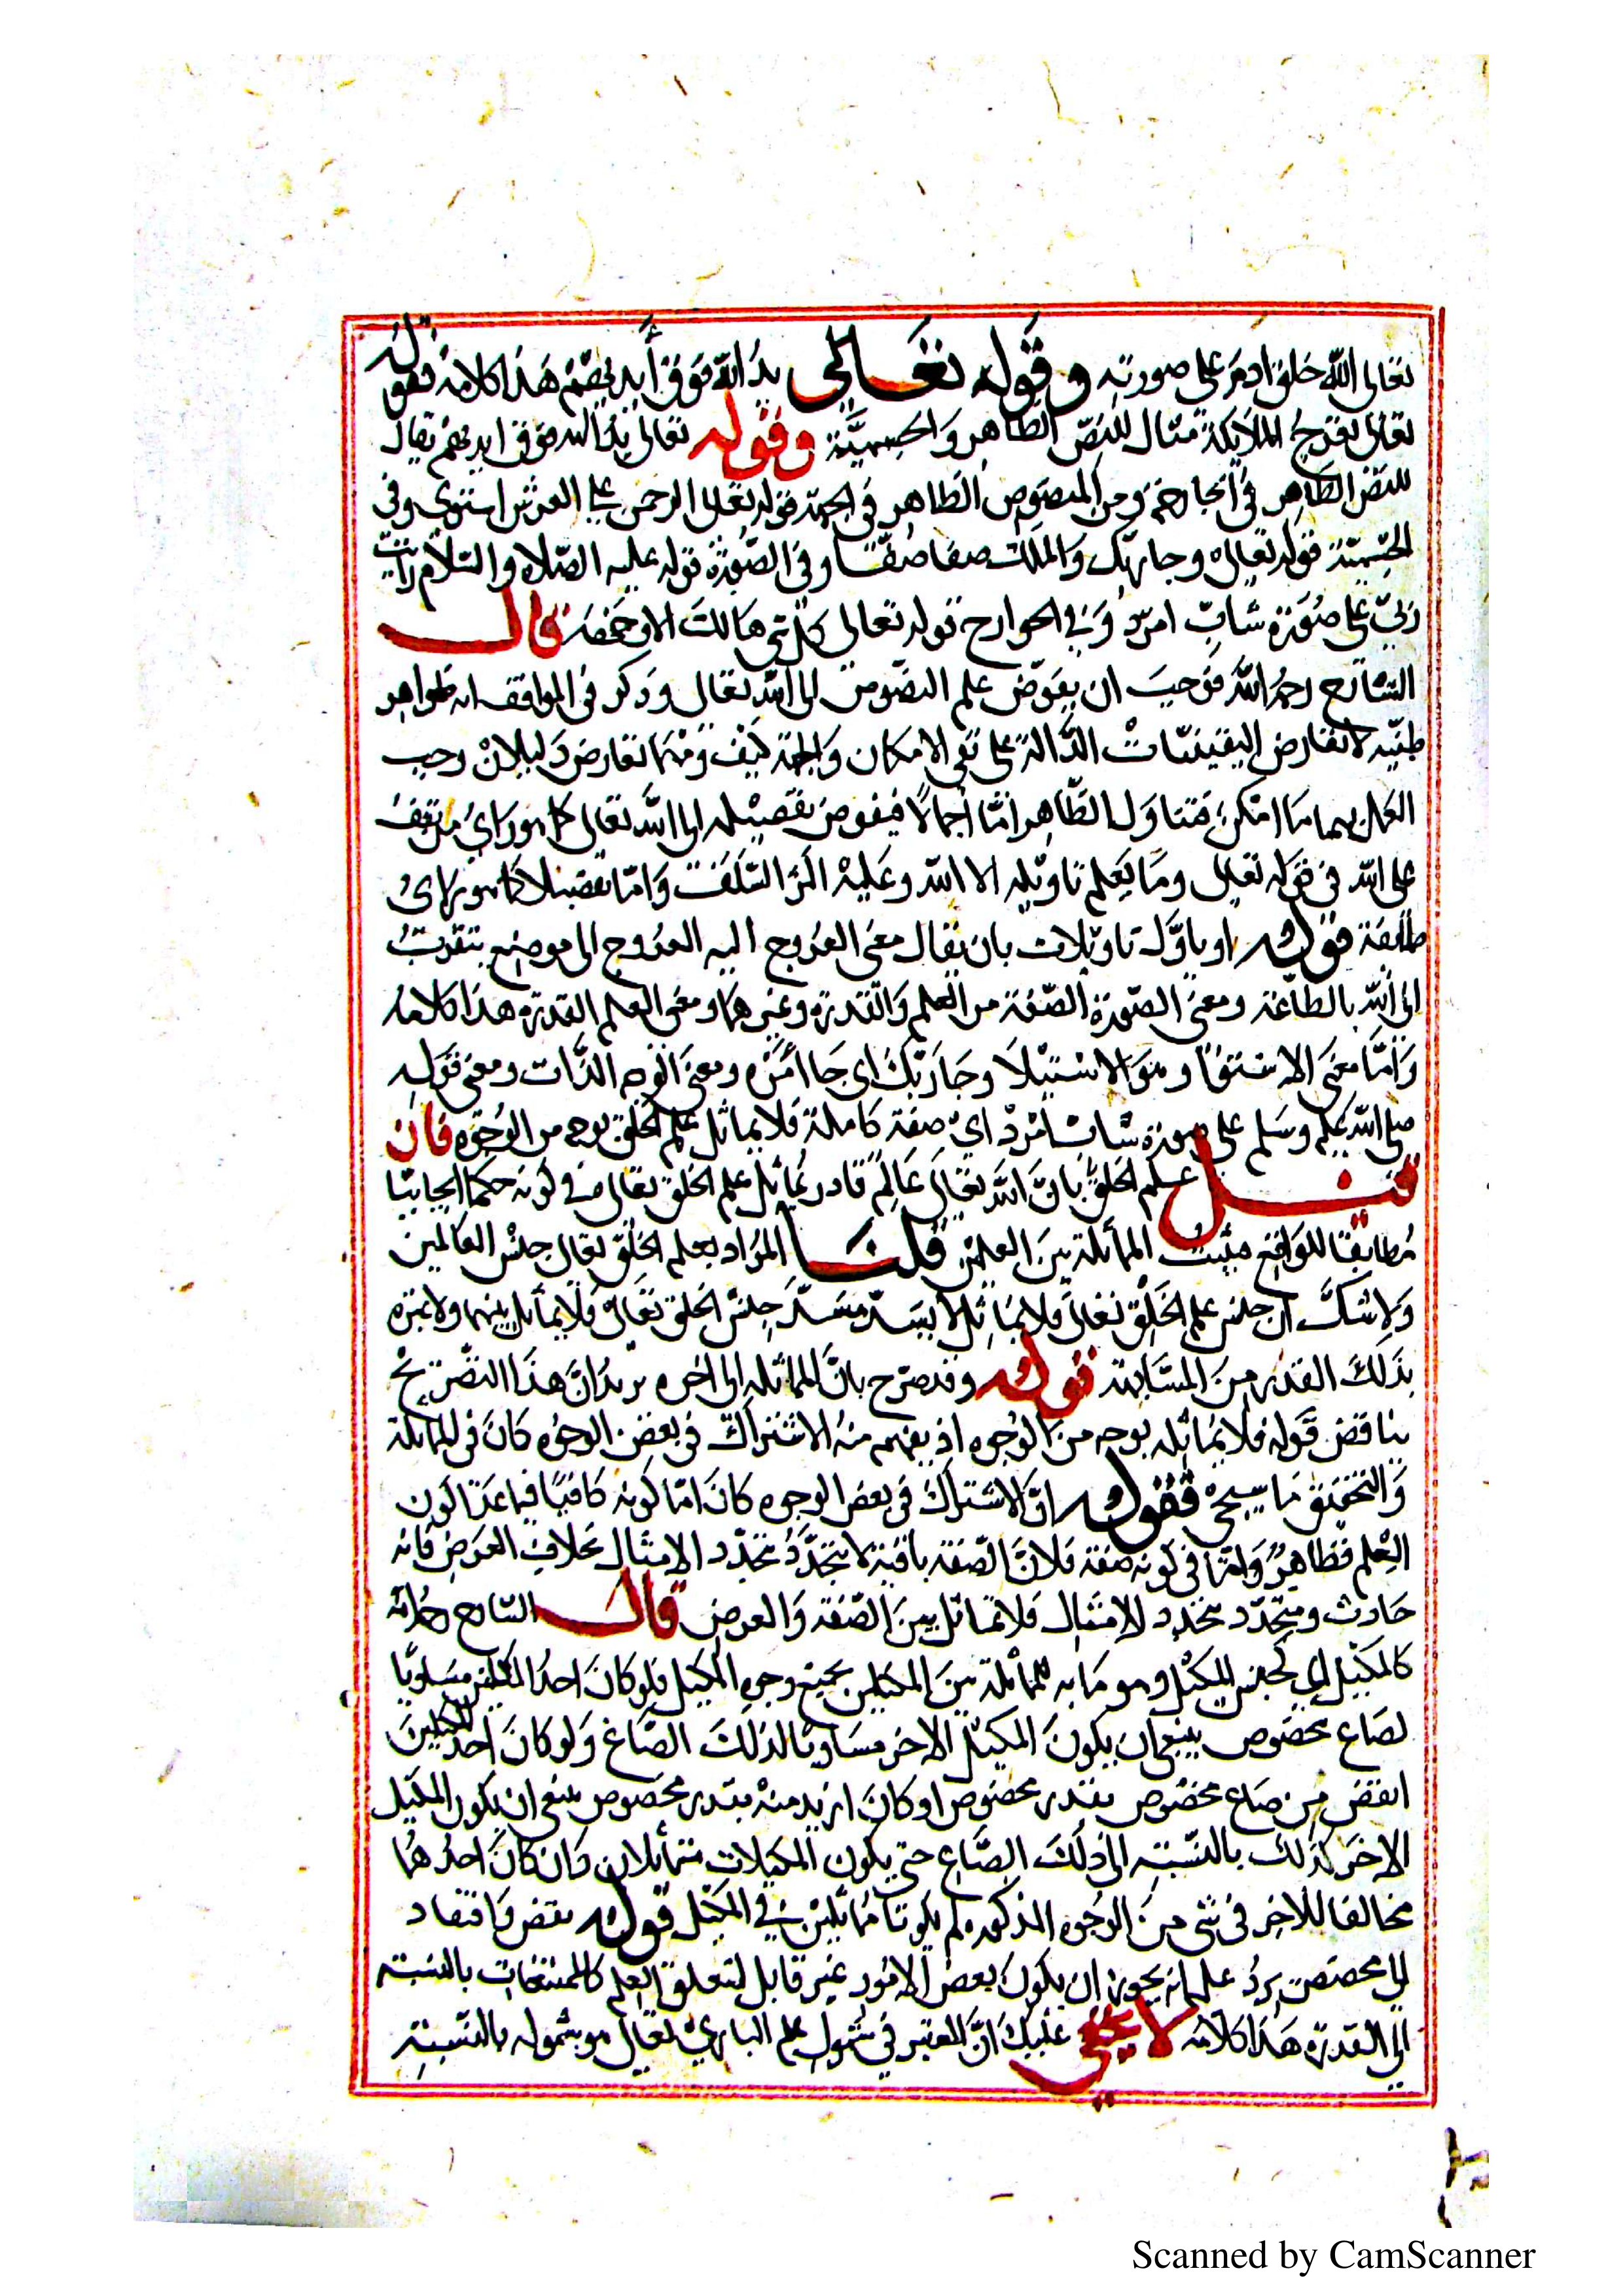 تعالى الله خلق ادم على صورته وقوله تعالى يد الله فوق أيديهم هذا كلامه فقوله
تعالى تعرج الملايكة مثال للنص الظاهر والجسميّة وقوله تعالى يد الله فوق ايديهم يقال
للنص الظاهر في الجارحة ومن المنصوص الظاهر في الجهة قوله تعالى الرحمن على العرش استوى وفي
الجسميّة قوله تعالى وجا ربك والملك صفا صفّا وفي الصّورة قوله عليه الصّلاه والسّلام رايت
ربي على صُورة شابّ امرد وفي الجوارح قوله تعالى كل شي هالك الا وجهه قال
الشارح رحمه الله فوجب ان يفوّض علم النصوص الى الله تعالى وذكر في المواقف انه ظواهر
ظنيّه لا تعارض اليقينيّات الدّالة على نفي الامكان والجهة كيف ومهما تعارض دليلان وجب
العمل بهما ما امكن فتناول الظّاهر امّا اجمالًا فيفوض تفصيله الى الله تعالى كما هو رأي من يقف
على الله في قوله تعالى وما يعلم تاويله الا الله وعليه اكثر السّلف وامّا تفصيلا كما هو راى
طايفة قوله او ياوّل تاويلات بان يقال معنى العروج اليه العروج الى موضع يتقرب
الى الله بالطّاعة ومعنى الصّورة الصّفة من العلم والقدرة وغيرهما ومعنى العلم القدرة هذا كلامه
وامّا معنى الاستوا وهو الاستيلا وجا ربّك اى جا أمره ومعنى الوجه الذّات ومعنى قوله
صلى الله عليه وسلم على صورة شاب أمرد اي صفة كاملة فلا يماثل علم الخلق بوجه من الوجوه فان
قيل علم الخلق بانّ الله تعالى عالم قادر يماثل علم الخلق تعالى في كونه حكما ايجابيّا
مُطابقًا للواقع فيثبت المماثلة بين العلمين قلنا المراد بعلم الخلق تعالى جنس العالمين
ولا شكّ ان جنس علم الخلق تعالى فلا يماثل لا يسدّ مسدّ جنس الخلق تعالى فلا يماثل بينهما ولا عبرة
بذلك القدر من المشابهة قوله وقد صرّح بانّ المماثله الى اخره يريد انّ هذا التصريح
يناقض قوله فلا يماثله بوجه من الوجوه اذ يفهم منه الاشتراك في بعض الوجوه كان في المماثلة
والتحقيق ما سيجئ فقوله انّ الاشتراك في بعض الوجوه كان امّا كونه كافيًا فيما عدا كون
العلم فظاهر وامّا في كونه صفة فلانّ الصّفة باقية لا يتجدّد بتجدّد الامثال بخلاف العرض فانه
حادث ومتجدّد بتجدد الامثال فلا تماثل بين الصّفة والعرض قال الشارح رحمه الله
كالمكيل اي كجنس المكيل وهو ما به المماثلة بين المكيلين بجميع وجوه المكيل فلو كان احد المكيلين مساويًا
لصاع مخصوص ينبغي ان يكون المكيل الاخر مساويًا لذلك الصّاع ولو كان احد المكيلين
انقض من صاع مخصوص بقدر مخصوص او كان ازيد منه بقدر مخصوص ينبغي ان يكون المكيل
الاخر كذلك بالنسبة الى ذلك الصّاع حتى يكون المكيلات متماثلان وان كان احدهما
مخالفا للاخر في شي من الوجوه المذكوره لم يكونا مماثلين في المكيل قوله نقض وافتقار
الى مخصص يردُ عليه انه يجوز ان يكون بعض الامور غير قابل لتعلق العلم كالممتنعات بالنسبة
الى القدرة هذا كلامه لا يخفى عليك انّ المعتبر في شمول علم الباري تعالى هو شموله بالنسبة
Scanned by CamScanner